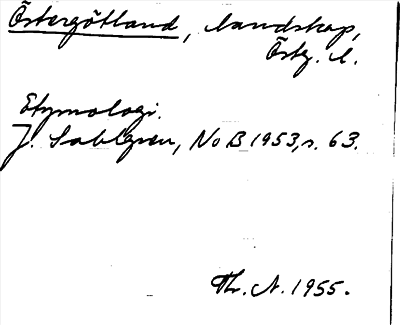 Östergötland, landskap,
Östg. l.
Etymologi.
J. Sahlgren, NoB 1953, s. 63.
Th. A. 1955.